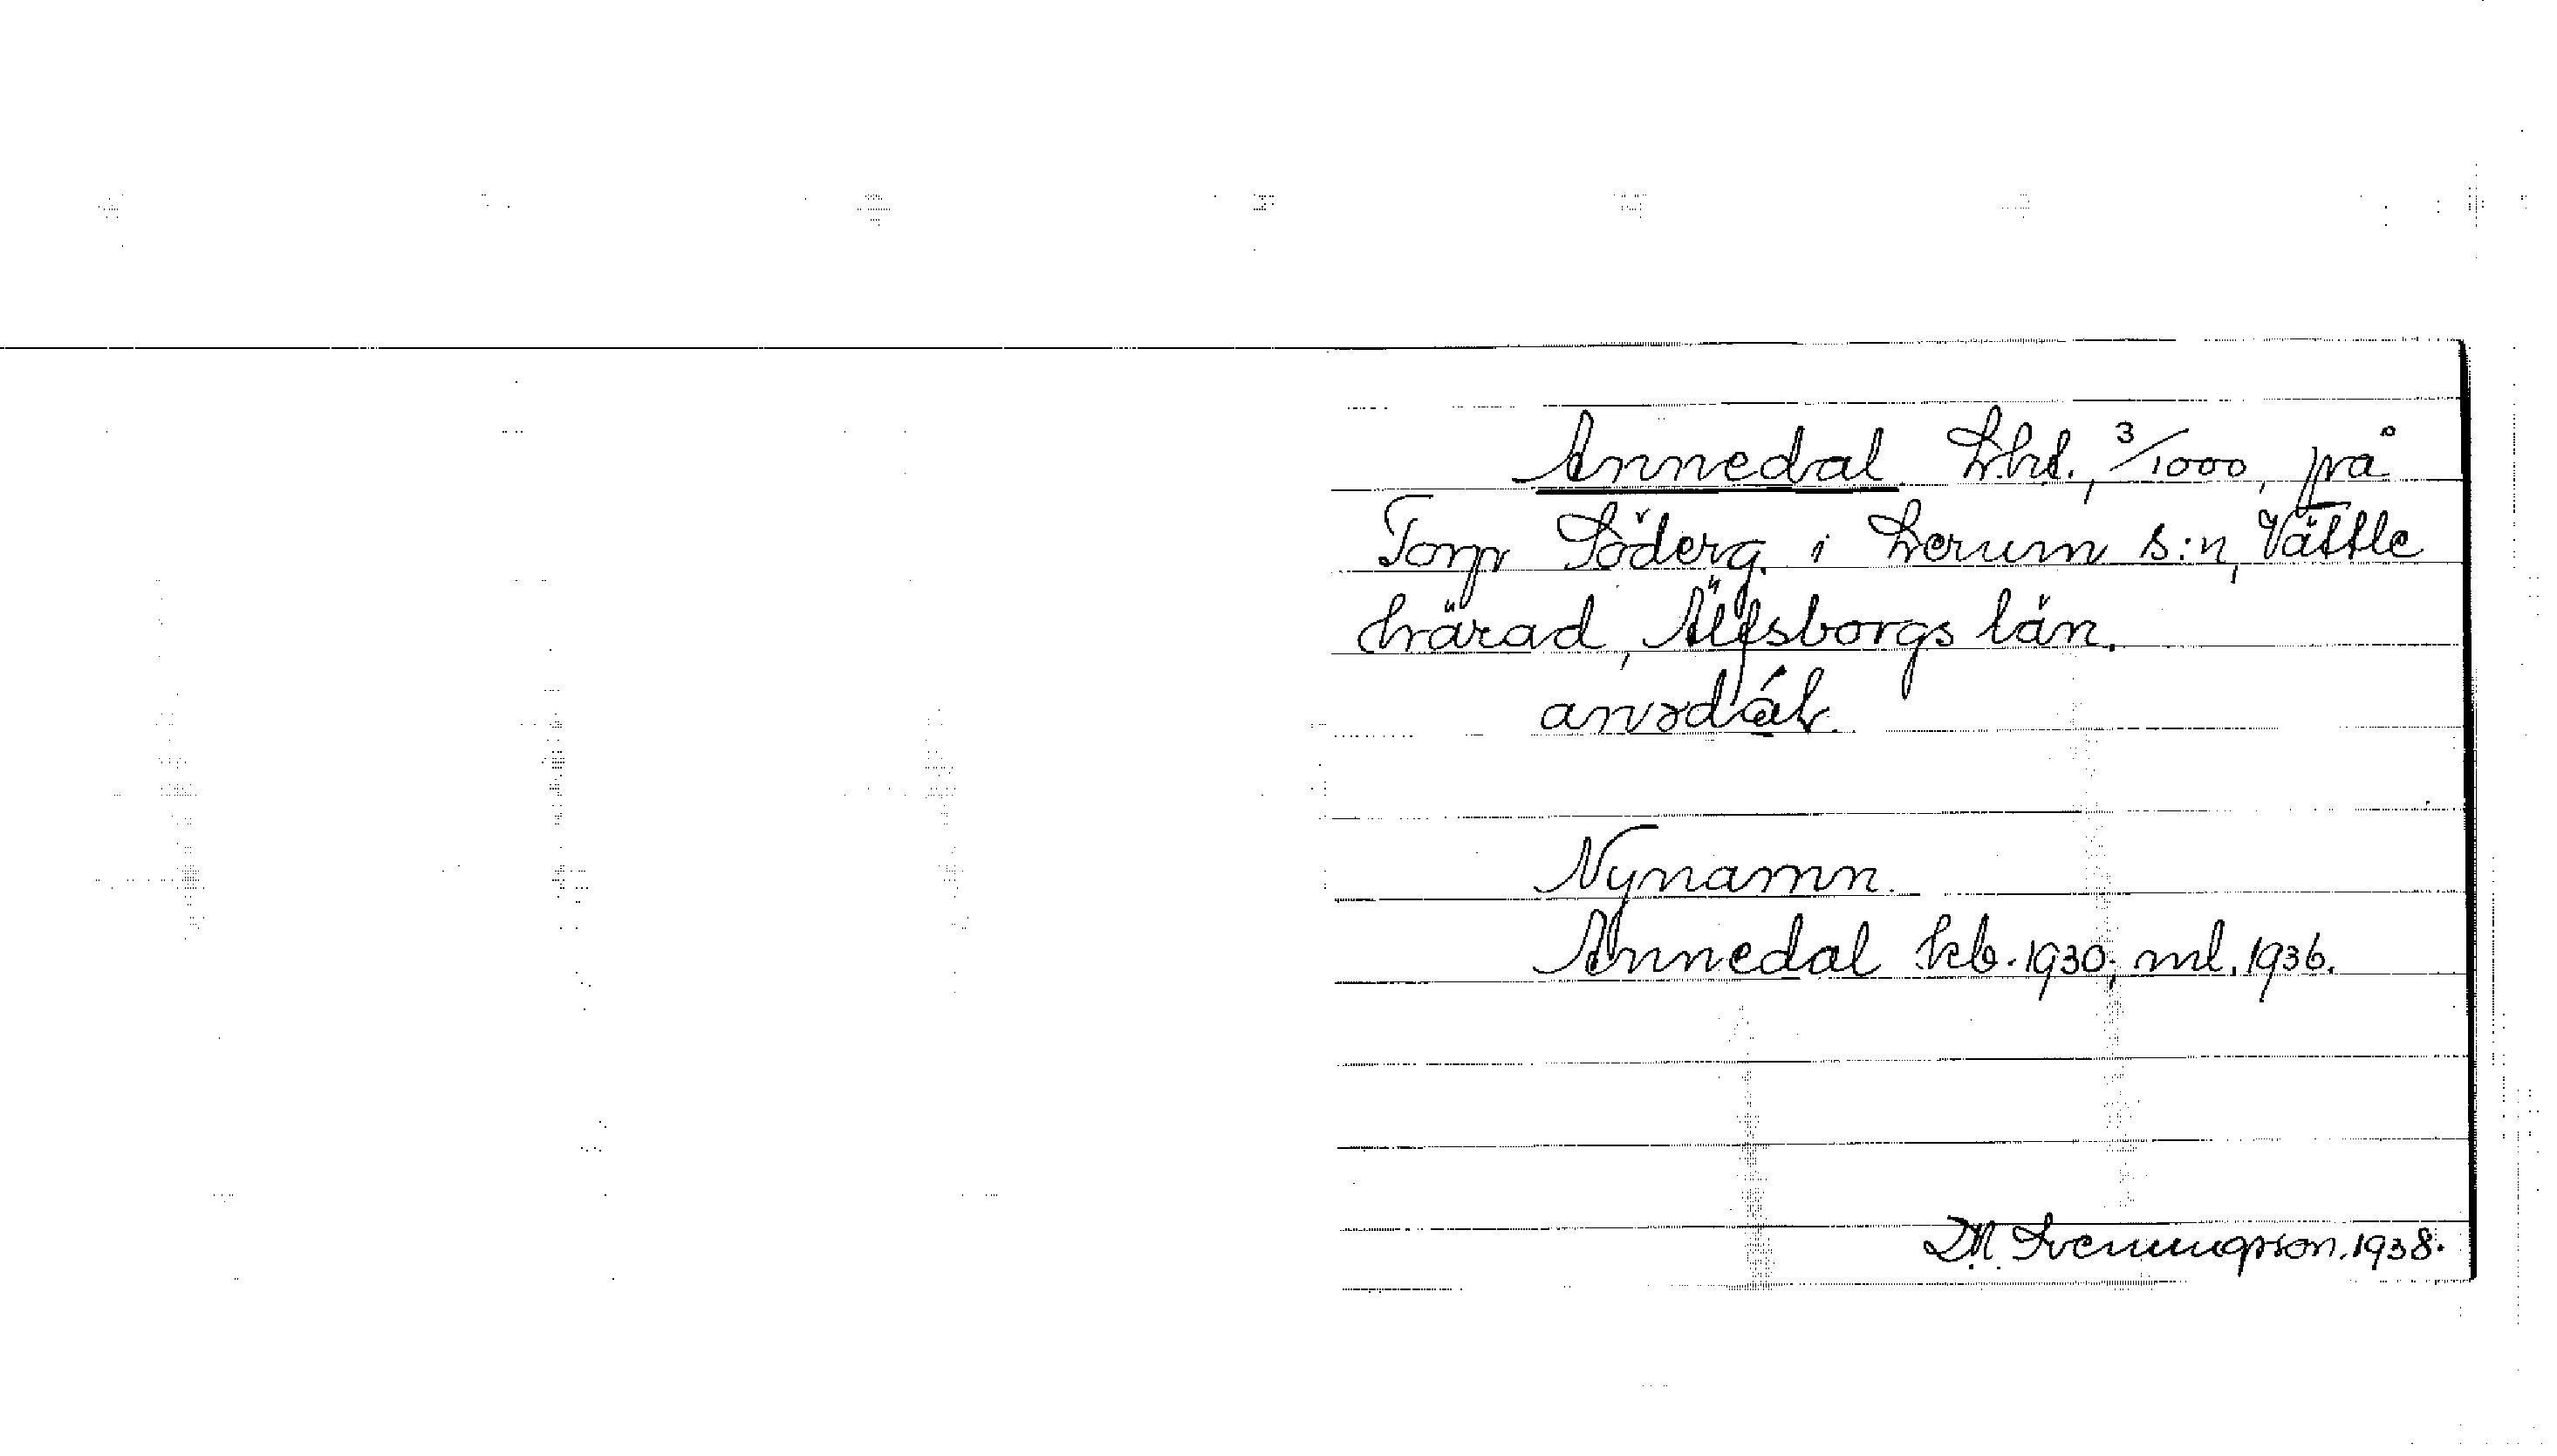 Annedal Lht., 3/1000, på
Torp Söderg. i Lerum s:n, Vättle
härad, Älfsborgs län.
Nynamn.
Annedal kb. 1930; ml. 1936.
D.N. Svenungsson. 1938.